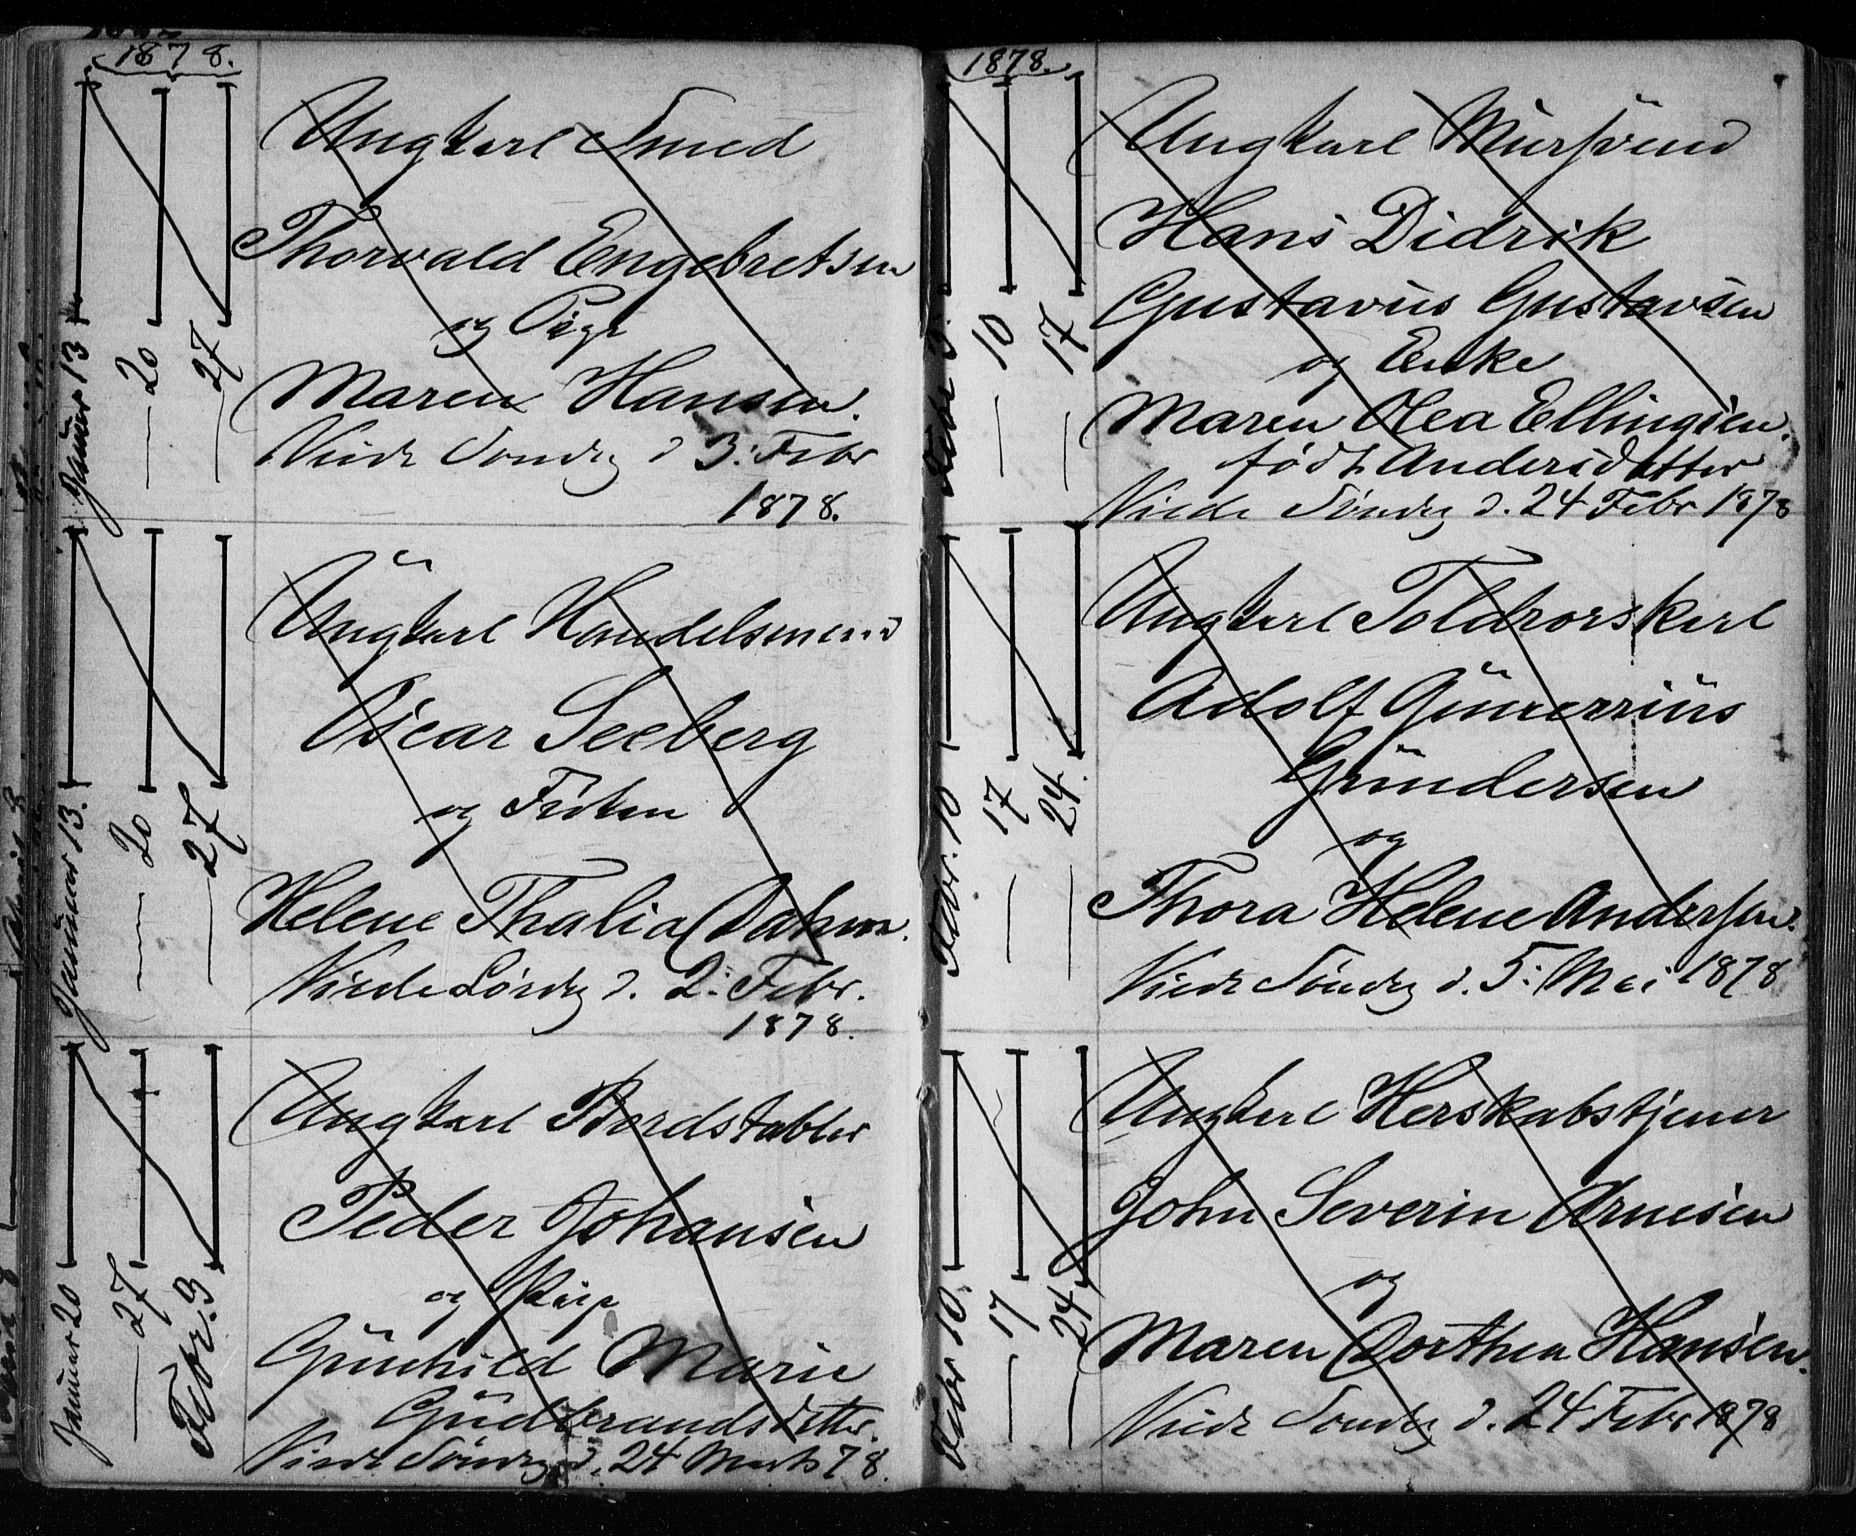 1878.
Januar 13
— 20
— 27
Ungkarl Smed
Thorvald Engebretsen
og Pige
Maren Hansen.
Viede Søndag d 3: Febr
1878.
Januar 13.
— 20
— 27
Ungkarl Handelsmand
Oscar Seeberg
og Frøken
Helene Thalia Dahm.
Viede Lørdag d. 2: Febr.
1878.
Januar 20
— 27
Febr. 3
Ungkarl Bordstabler
Peder Johansen
og Pige
Gunhild Marie
Gudbrandsdatter.
Viede Søndag d. 24 Marts 78.
1878.
Febr 3.
— 10
— 17
Ungkarl Mursvend
Hans Didrik
Gustavus Gustavsen
og Enke
Maren Olea Ellingsen.
født Andersdatter
Viede Søndag d. 24 Febr 1878
Febr. 10
— 17
— 24.
Ungkarl Toldrorskarl
Adolf Gunerius
Gundersen
og
Thora Helene Andersen.
Viede Søndag d. 5: Mai 1878
Febr 10.
— 17
— 24
Ungkarl Herskabstjener
John Severin Arnesen
og
Maren Dorthea Hansen.
Viede Søndag d. 24 Febr 1878